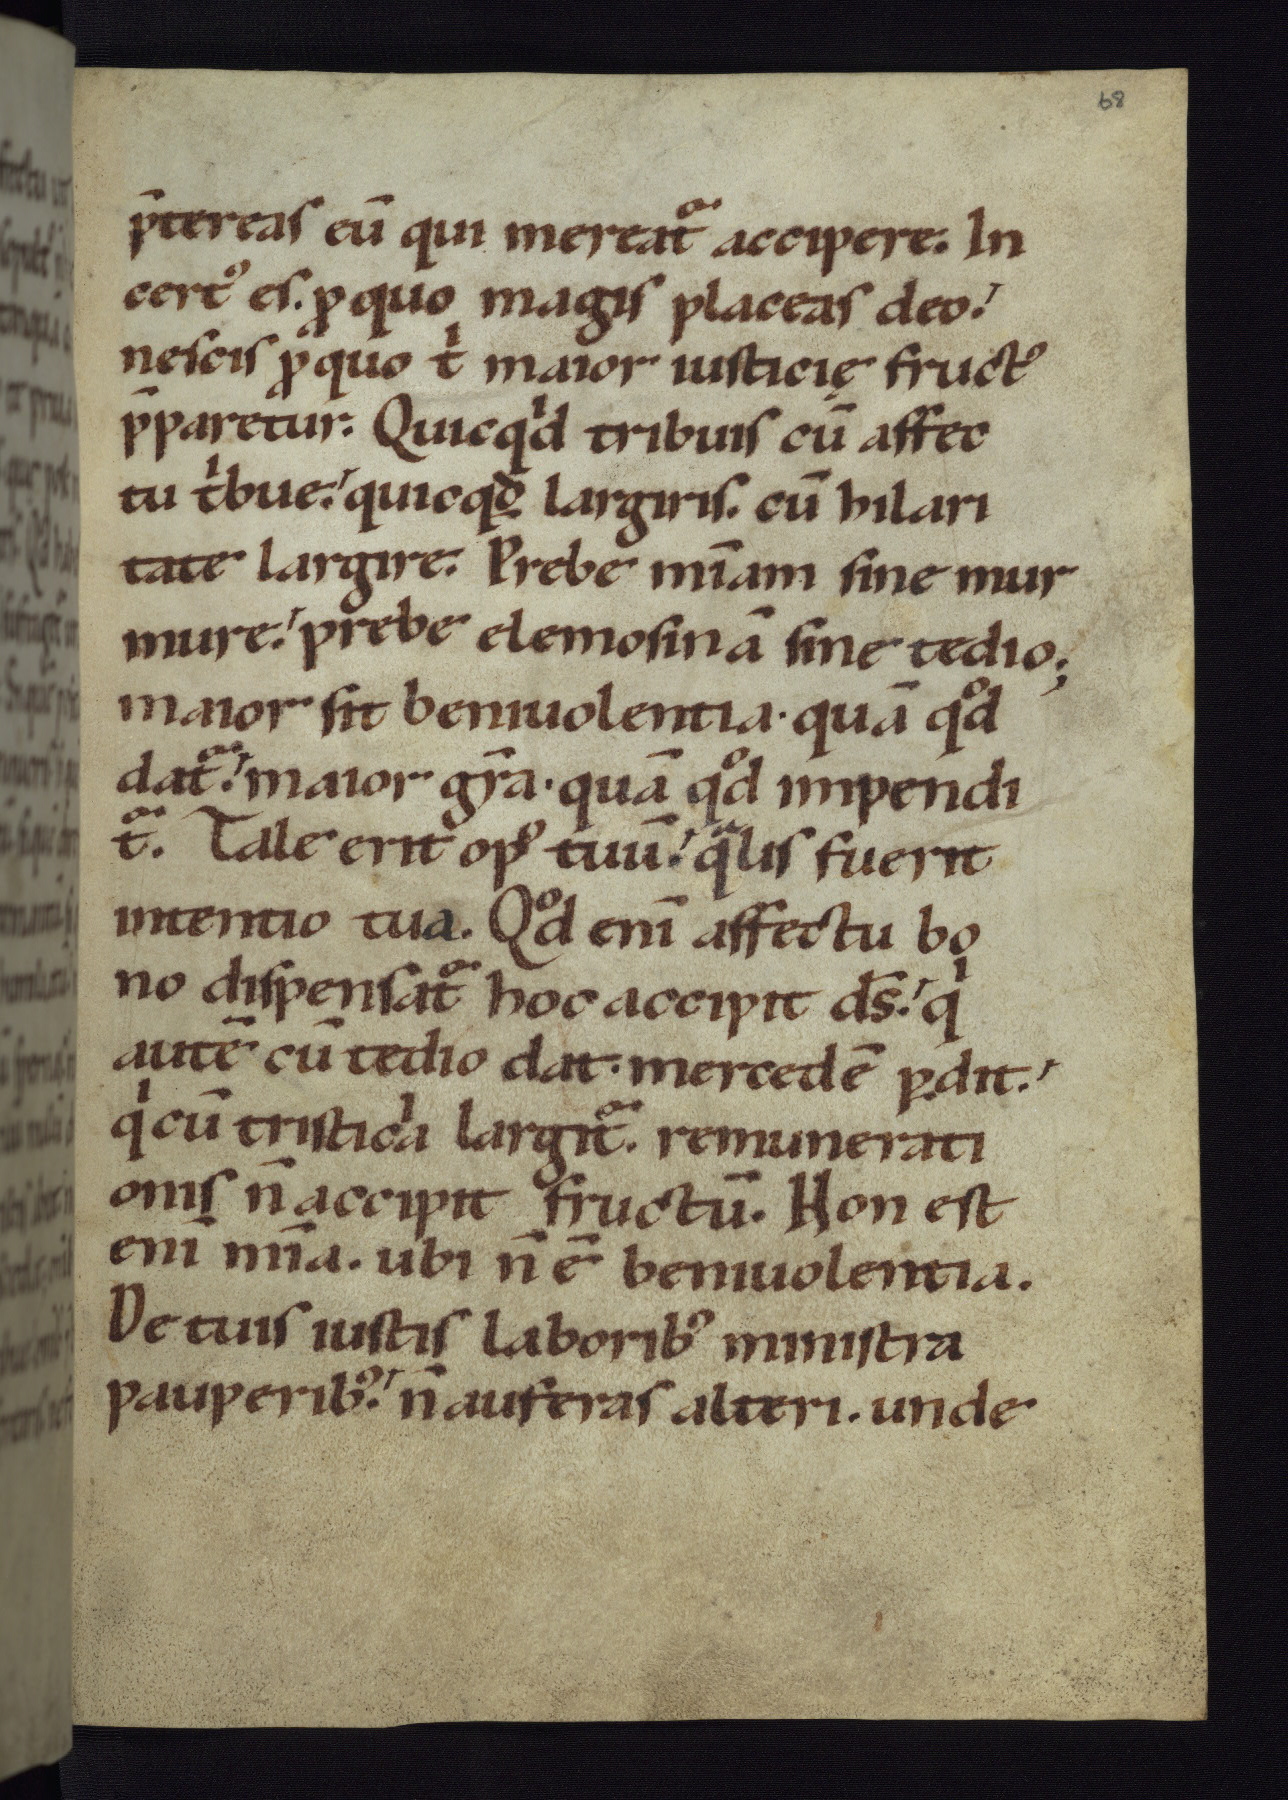 68
p̄tereas eū qui mereat᷑ accipere. In
certꝰ es. ꝓ quo magis placeas deo.
nescis ꝓ quo tͥ maior iusticię fructꝰ
p̄paretur. Quicqͥd tribuis cū affec
tu tͥbue. quicqͥd largiris. cū hilari
tate largire. Prebe mīam sine mur
mure. prebe elemosinā sine tedio;
maior sit beniuolentia. quā qͦd
dat᷑. maior gr̄a. quā qͦd impendi
t᷑. Tale erit opꝰ tuū. qͣlis fuerit
intentio tua. Qͦd enī affectu bo
no dispensat᷑ hoc accipit ds̄. qͥ
autē cū tedio dat. mercedē ꝑdit.
qͥ cū tristicͥa largit᷑. remunerati
onis n̄ accipit fructū. Non est
enī mīa. ubi n̄ ē beniuolentia.
De tuis iustis laboribꝰ ministra
pauperibꝰ. n̄ auferas alteri. unde